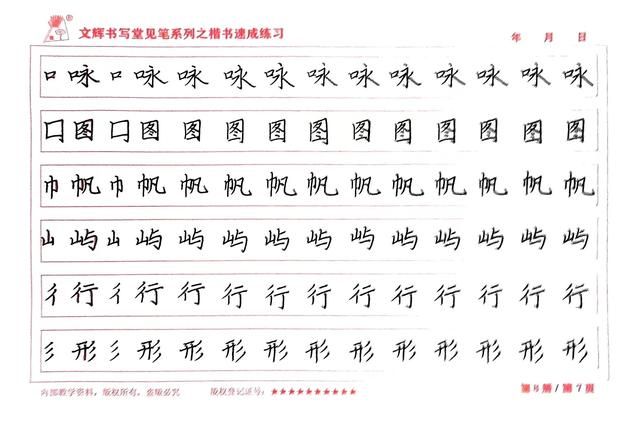 文辉书写堂见笔系列之楷书速成练习 年 月 日
口 咏 口 咏 咏 咏 咏 咏 咏 咏 咏 咏 咏 咏
囗 图 囗 图 图 图 图 图 图 图 图 图 图 图
巾 帆 巾 帆 帆 帆 帆 帆 帆 帆 帆 帆 帆 帆
山 屿 山 屿 屿 屿 屿 屿 屿 屿 屿 屿 屿 屿
彳 行 彳 行 行 行 行 行 行 行 行 行 行 行
彡 形 彡 形 形 形 形 形 形 形 形 形 形 形
内部教学资料，版权所有，盗版必究 版权登记证号：★★★★★★★★★★ 第8册/第7页